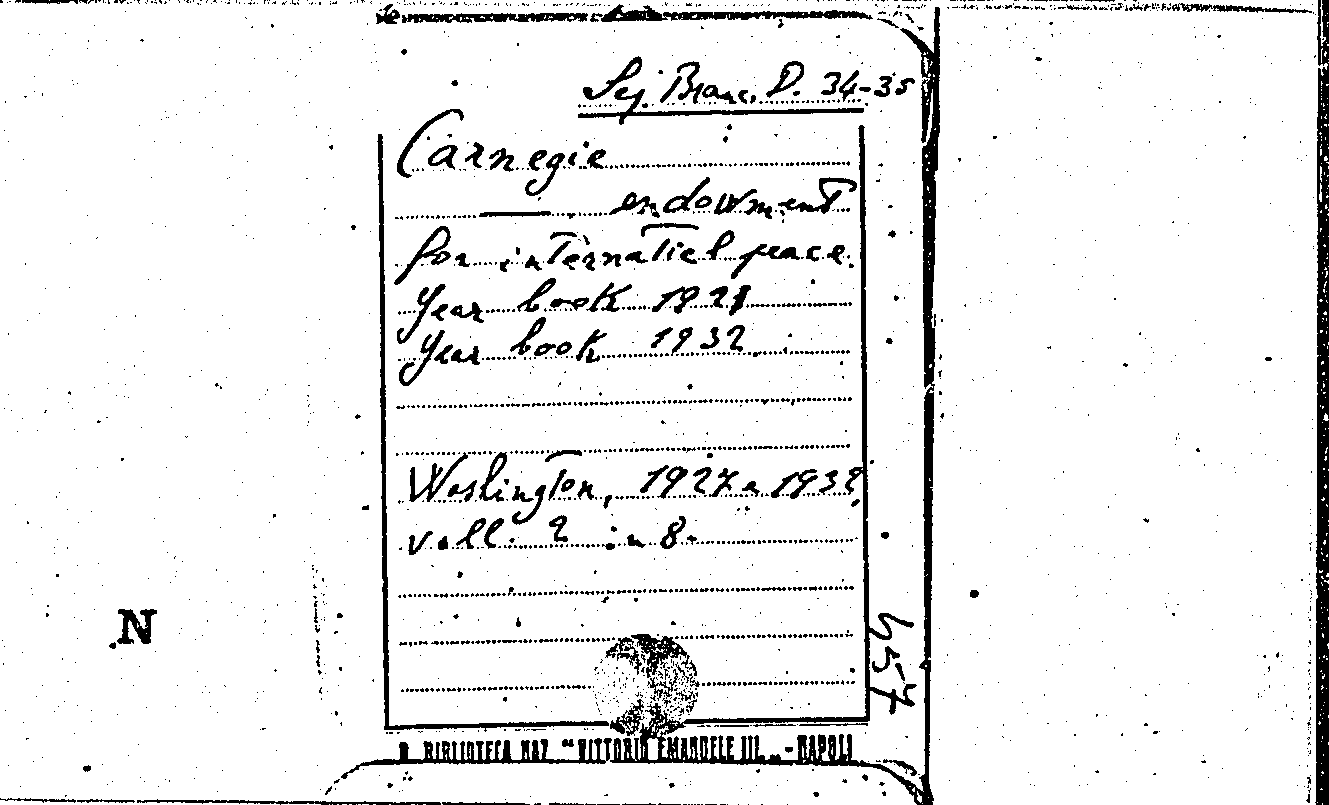 Sej. Branc. D. 34-35
Carnegie
— endowment
for internatiel peace.
Year book 1921
Year book 1932
Washington, 1927 a 1932,
voll. 2 in 8.
457
N
R. BIBLIOTECA NAZ. "VITTORIO EMANUELE III" - NAPOLI